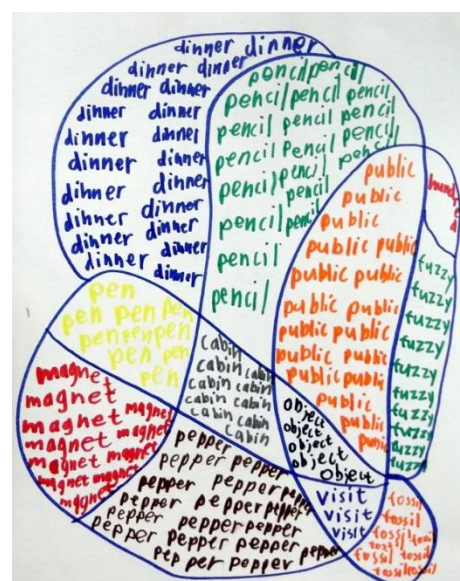 dinner dinner
dinner dinner
dinner dinner
dinner dinner
dinner dinner
dinner dinner
dinner dinner
dinner dinner
dinner dinner
dinner dinner
dinner
pencil pencil
pencil pencil pencil
pencil pencil pencil
pencil Pencil pencil
pencil pencil
pencil
pencil pencil
pencil
pencil
public
public
public
public public
public public
public public
public public
public public
public public
public
public
hundred
fuzzy
fuzzy
fuzzy
fuzzy
fuzzy
fuzzy
fuzzy
fuzzy
fuzzy
pen
pen pen pen
pen pen pen
pen pen
pen
cabin
cabin cabin
cabin cabin
cabin cabin
cabin cabin
cabin
magnet
magnet
magnet magnet
magnet magnet
magnet magnet
magnet
object
object
object
object
object
pepper
pepper pepper
pepper pepper pepper
pepper pepper pepper
pepper pepper pepper
pepper pepper pepper
pepper pepper pepper
visit
visit
visit
fossil
fossil
fossil fossil
fossil fossil
fossil fossil
fossil fossil